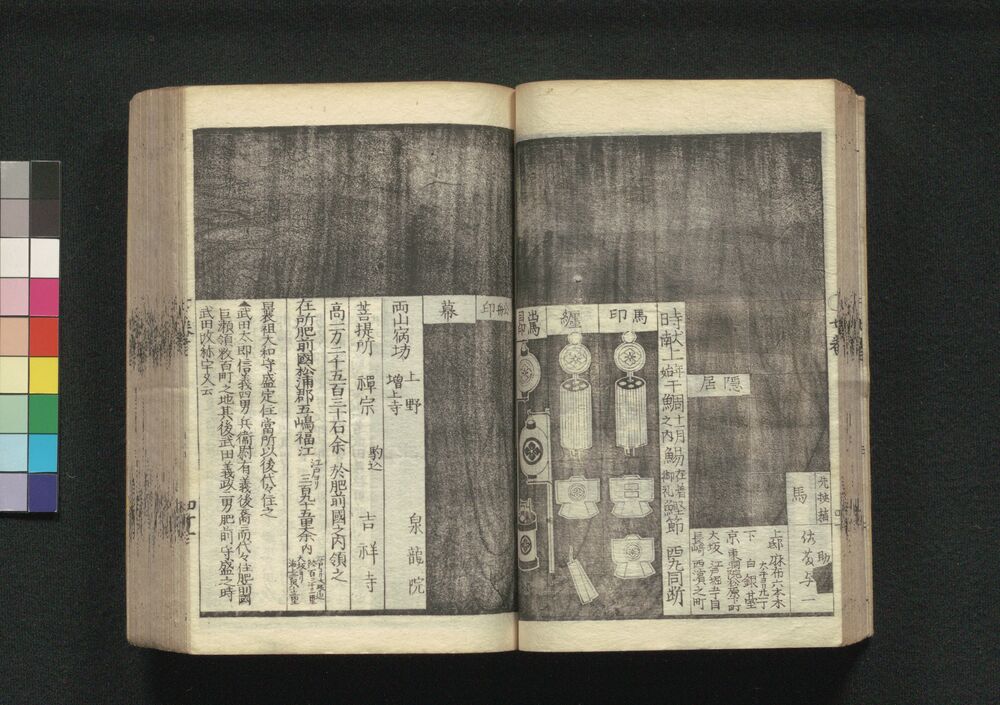 先挟箱
馬
佐藤与一
上邸 麻布六本木
下 白銀臺
京 東洞院松原下町
大坂 江戸堀五丁目
長崎 西濱之町
隠居
時献上
年始 干鯛
十一月
之内 鰑
在著御礼
鰹節
西丸同断
馬印
纏
出馬目印
舩印
幕
両山宿坊
上野
増上寺
泉龍院
菩提所 禅宗
駒込
吉祥寺
高一万二千五百三十石余 於肥前國之内領之
在所肥前國松浦郡五嶋福江
江戸ヨリ
三百九十五里余内
曩祖大和守盛定住當所以後代々住之
▲武田太郎信義四男兵衛尉有義後裔而代々住肥前國
巨瀬領数百町之地其後武田義政二男肥前守盛之時
武田改称宇久云